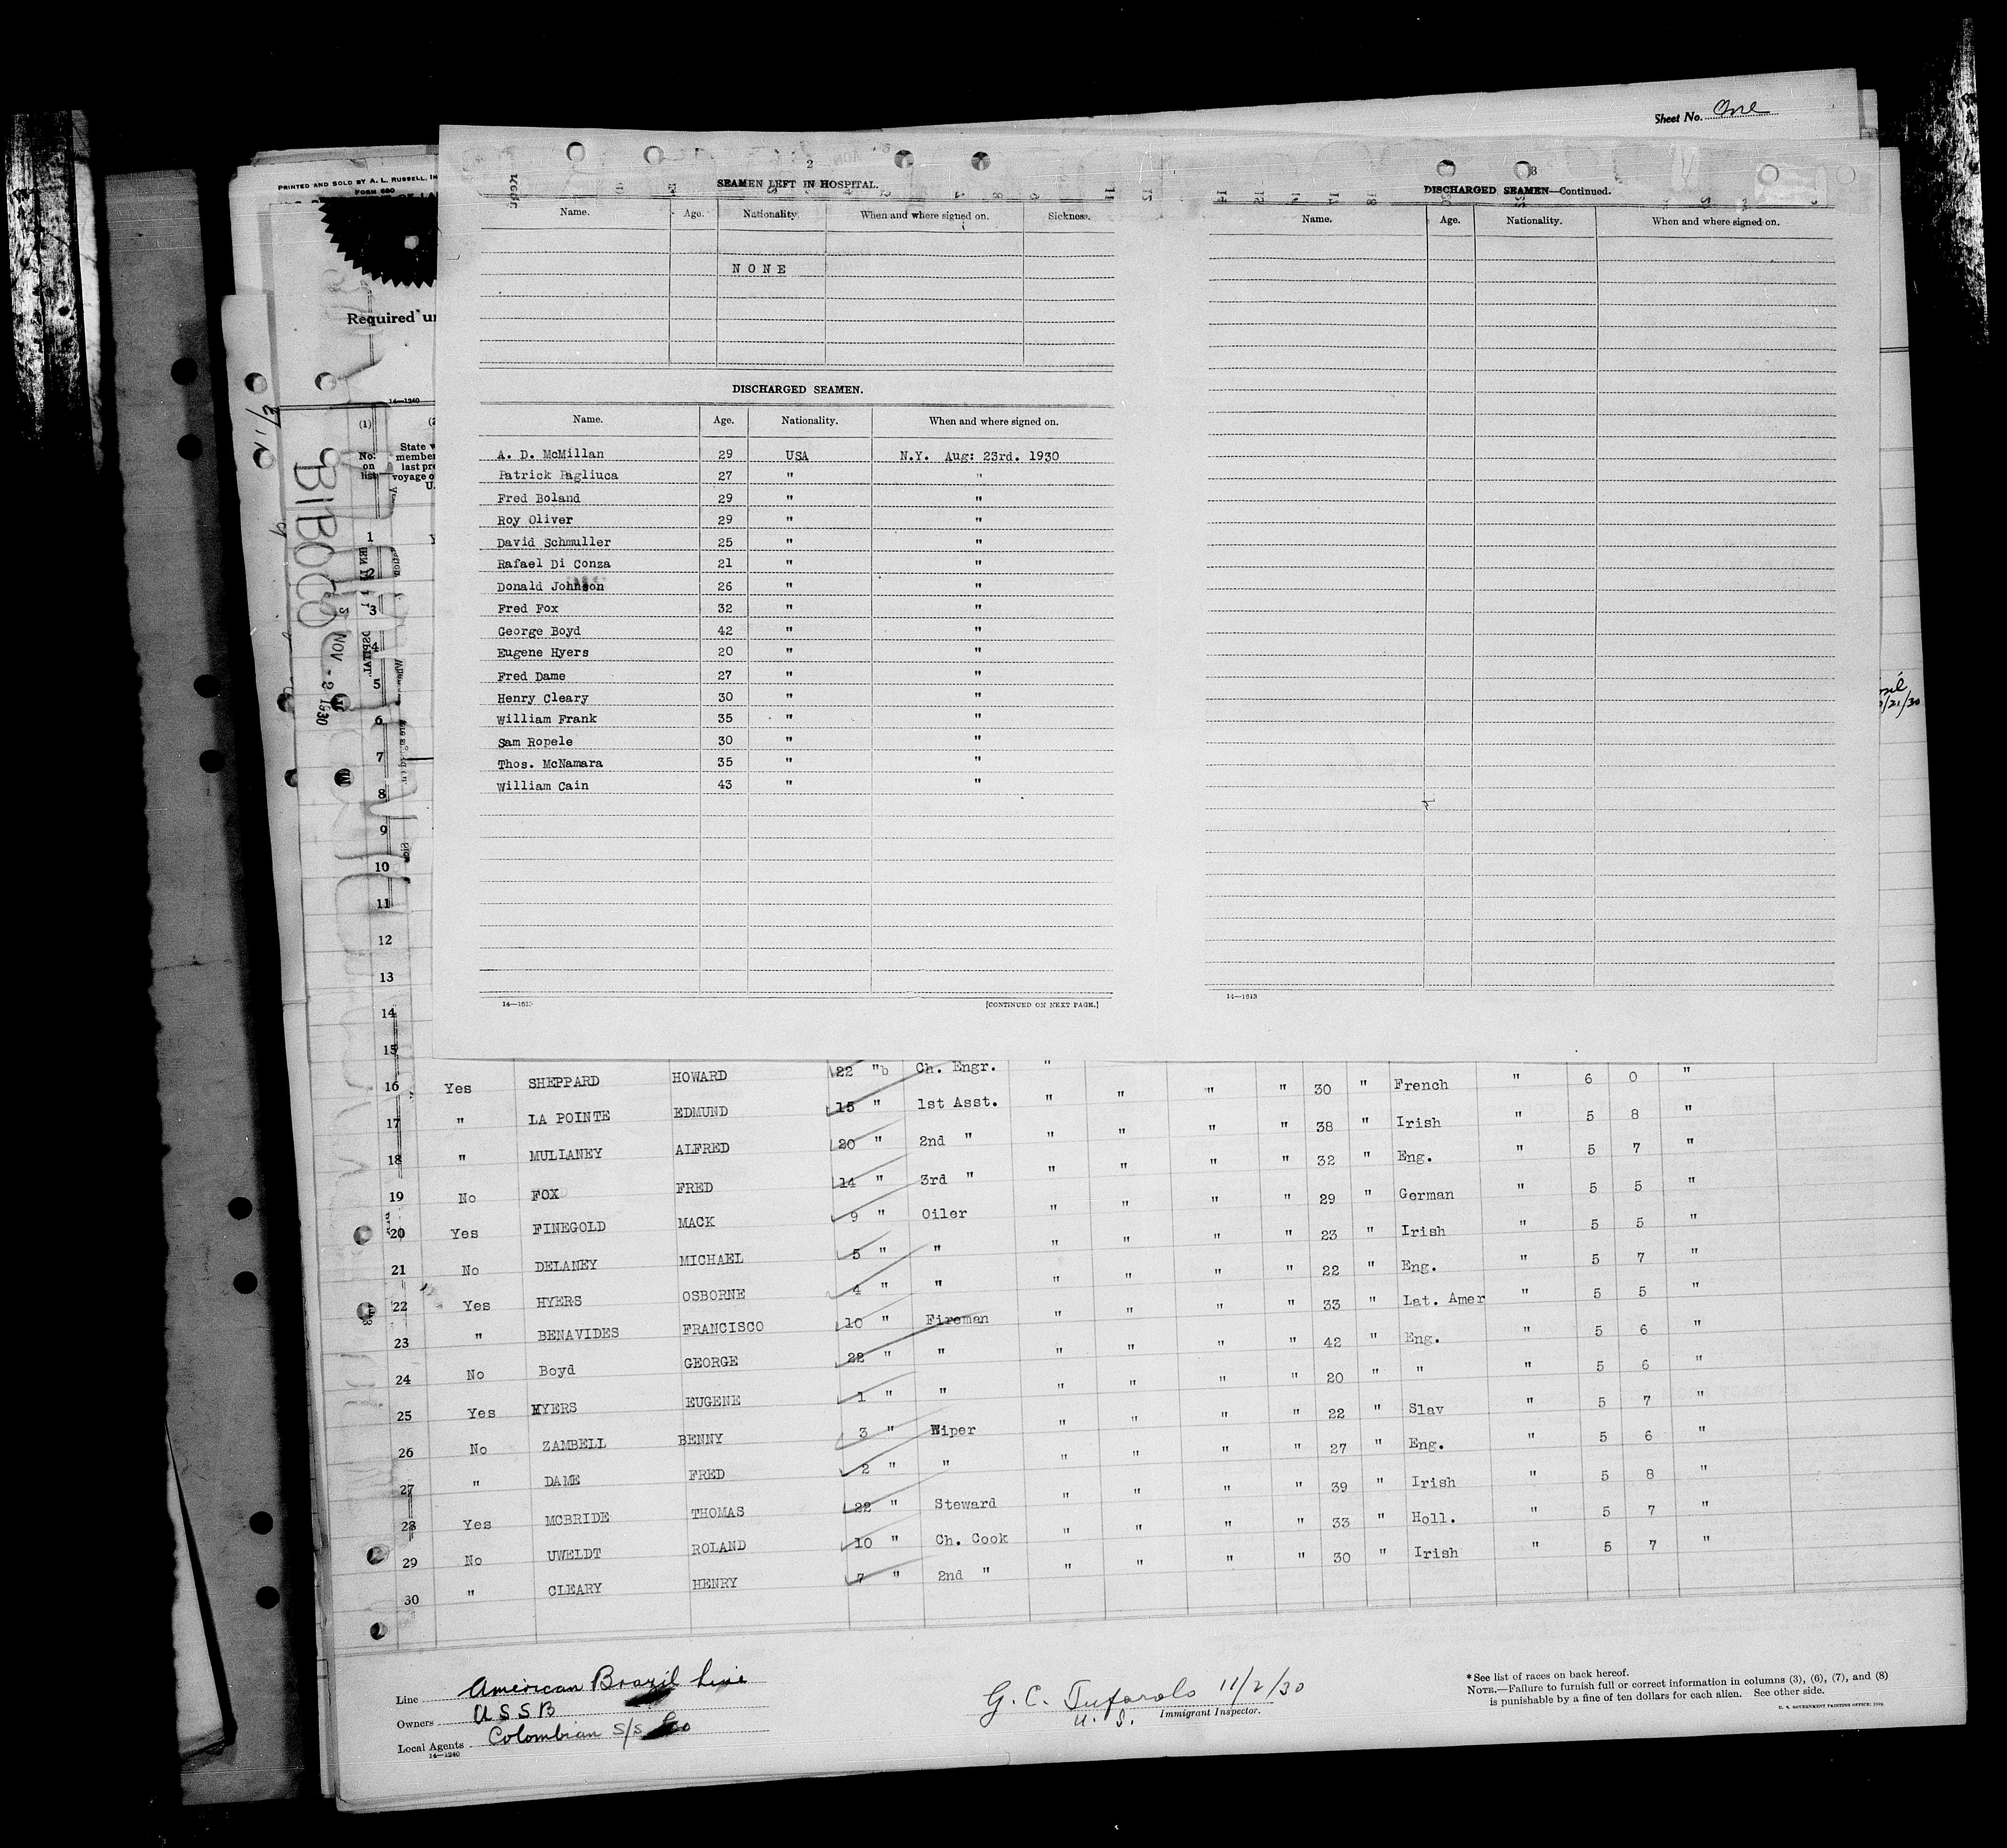 Sheet No. One
PRINTED AND SOLD BY A. L. RUSSELL, IN
FORM 680
Required un
14—1240
(1)
No. on list
State w
member
last pre
voyage o
U.
BIBOCO
NOV - 2 1930
2
SEAMEN LEFT IN HOSPITAL.
Name. Age. Nationality. When and where signed on. Sickness.
NONE
DISCHARGED SEAMEN.
Name. Age. Nationality. When and where signed on.
A. D. McMillan 29 USA N.Y. Aug: 23rd. 1930
Patrick Pagliuca 27 " "
Fred Boland 29 " "
Roy Oliver 29 " "
David Schmuller 25 " "
Rafael Di Conza 21 " "
Donald Johnson 26 " "
Fred Fox 32 " "
George Boyd 42 " "
Eugene Hyers 20 " "
Fred Dame 27 " "
Henry Cleary 30 " "
William Frank 35 " "
Sam Ropele 30 " "
Thos. McNamara 35 " "
William Cain 43 " "
14—1613 [CONTINUED ON NEXT PAGE.]
3
DISCHARGED SEAMEN—Continued.
Name. Age. Nationality. When and where signed on.
14—1613
1
2
3
4
5
6
7
8
9
10
11
12
13
14
15
16 Yes SHEPPARD HOWARD 22 " Ch. Engr. "
17 " LA POINTE EDMUND 15 " 1st Asst. " " " " 30 " French " 6 0 "
18 " MULLANEY ALFRED 20 " 2nd " " " " " 38 " Irish " 5 8 "
19 No FOX FRED 14 " 3rd " " " " " 32 " Eng. " 5 7 "
20 Yes FINEGOLD MACK 9 " Oiler " " " " 29 " German " 5 5 "
21 No DELANEY MICHAEL 5 " " " " " " 23 " Irish " 5 5 "
22 Yes HYERS OSBORNE 4 " " " " " " 22 " Eng. " 5 7 "
23 " BENAVIDES FRANCISCO 10 " Fireman " " " " 33 " Lat. Amer " 5 5 "
24 No Boyd GEORGE 22 " " " " " " 42 " Eng. " 5 6 "
25 Yes HYERS EUGENE 1 " " " " " " 20 " " " 5 6 "
26 No ZAMBELL BENNY 3 " Wiper " " " " 22 " Slav " 5 7 "
27 " DAME FRED 2 " " " " " " 27 " Eng. " 5 6 "
28 Yes MCBRIDE THOMAS 22 " Steward " " " " 39 " Irish " 5 8 "
29 No UWELDT ROLAND 10 " Ch. Cook " " " " 33 " Holl. " 5 7 "
30 " CLEARY HENRY 7 " 2nd " " " " " 30 " Irish " 5 7 "
Line American Brazil Line
Owners U S S B
Local Agents Colombian S/S Co
14—1240
G. C. Tufarolo 11/2/30
U. S. Immigrant Inspector.
*See list of races on back hereof.
NOTE.—Failure to furnish full or correct information in columns (3), (6), (7), and (8)
is punishable by a fine of ten dollars for each alien. See other side.
U. S. GOVERNMENT PRINTING OFFICE: 1929